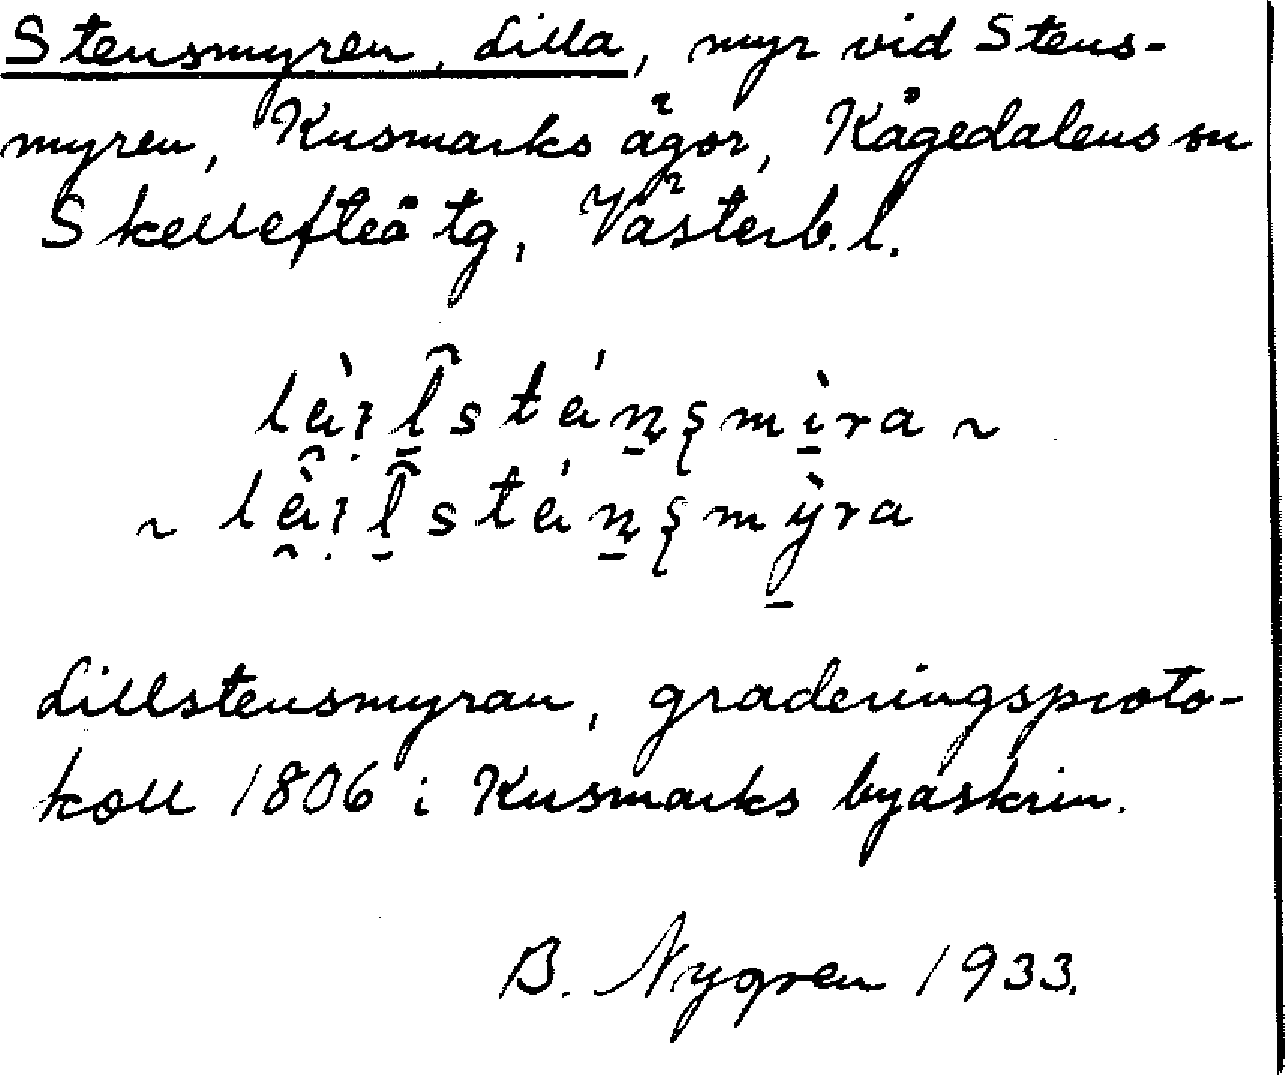 Stensmyren, Lilla, myr vid Stens-
myren, Kusmarks ägor, Kågedalens sn
Skellefteå tg, Västerb. l.
Lillstensmyran, graderingsproto-
koll 1806 i Kusmarks byaskrin.
B. Nygren 1933.